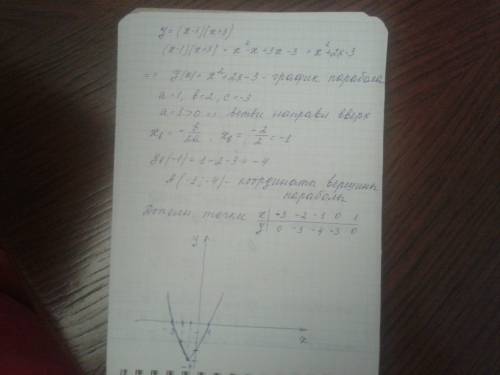 y = (x-1)(x+3)
(x-1)(x+3) = x²-x+3x-3 = x²+2x-3
=> y(x) = x²+2x-3 - график парабола
a=1, b=2, c=-3
a=1>0 => ветви направл вверх
x₀ = -b/2a, x₀ = -2/2 = -1
y₀(-1) = 1-2-3 = -4
A(-1;-4) - координата вершины
параболы
точки x | -3 -2 -1 0 1
y | 0 -3 -4 -3 0
y
x